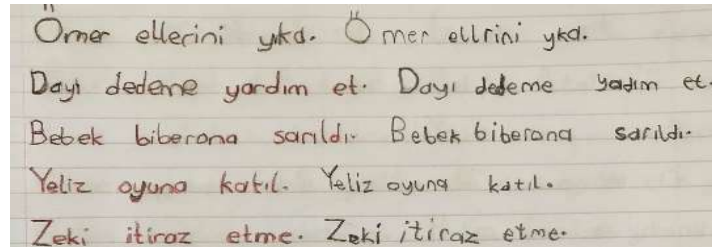 Ömer ellerini yıka. Ömer ellrini yka.
Dayı dedeme yardım et. Dayı dedeme yadım et.
Bebek biberona sarıldı. Bebek biberona sarıldı.
Yeliz oyuna katıl. Yeliz oyuna katıl.
Zeki itiraz etme. Zeki itiraz etme.